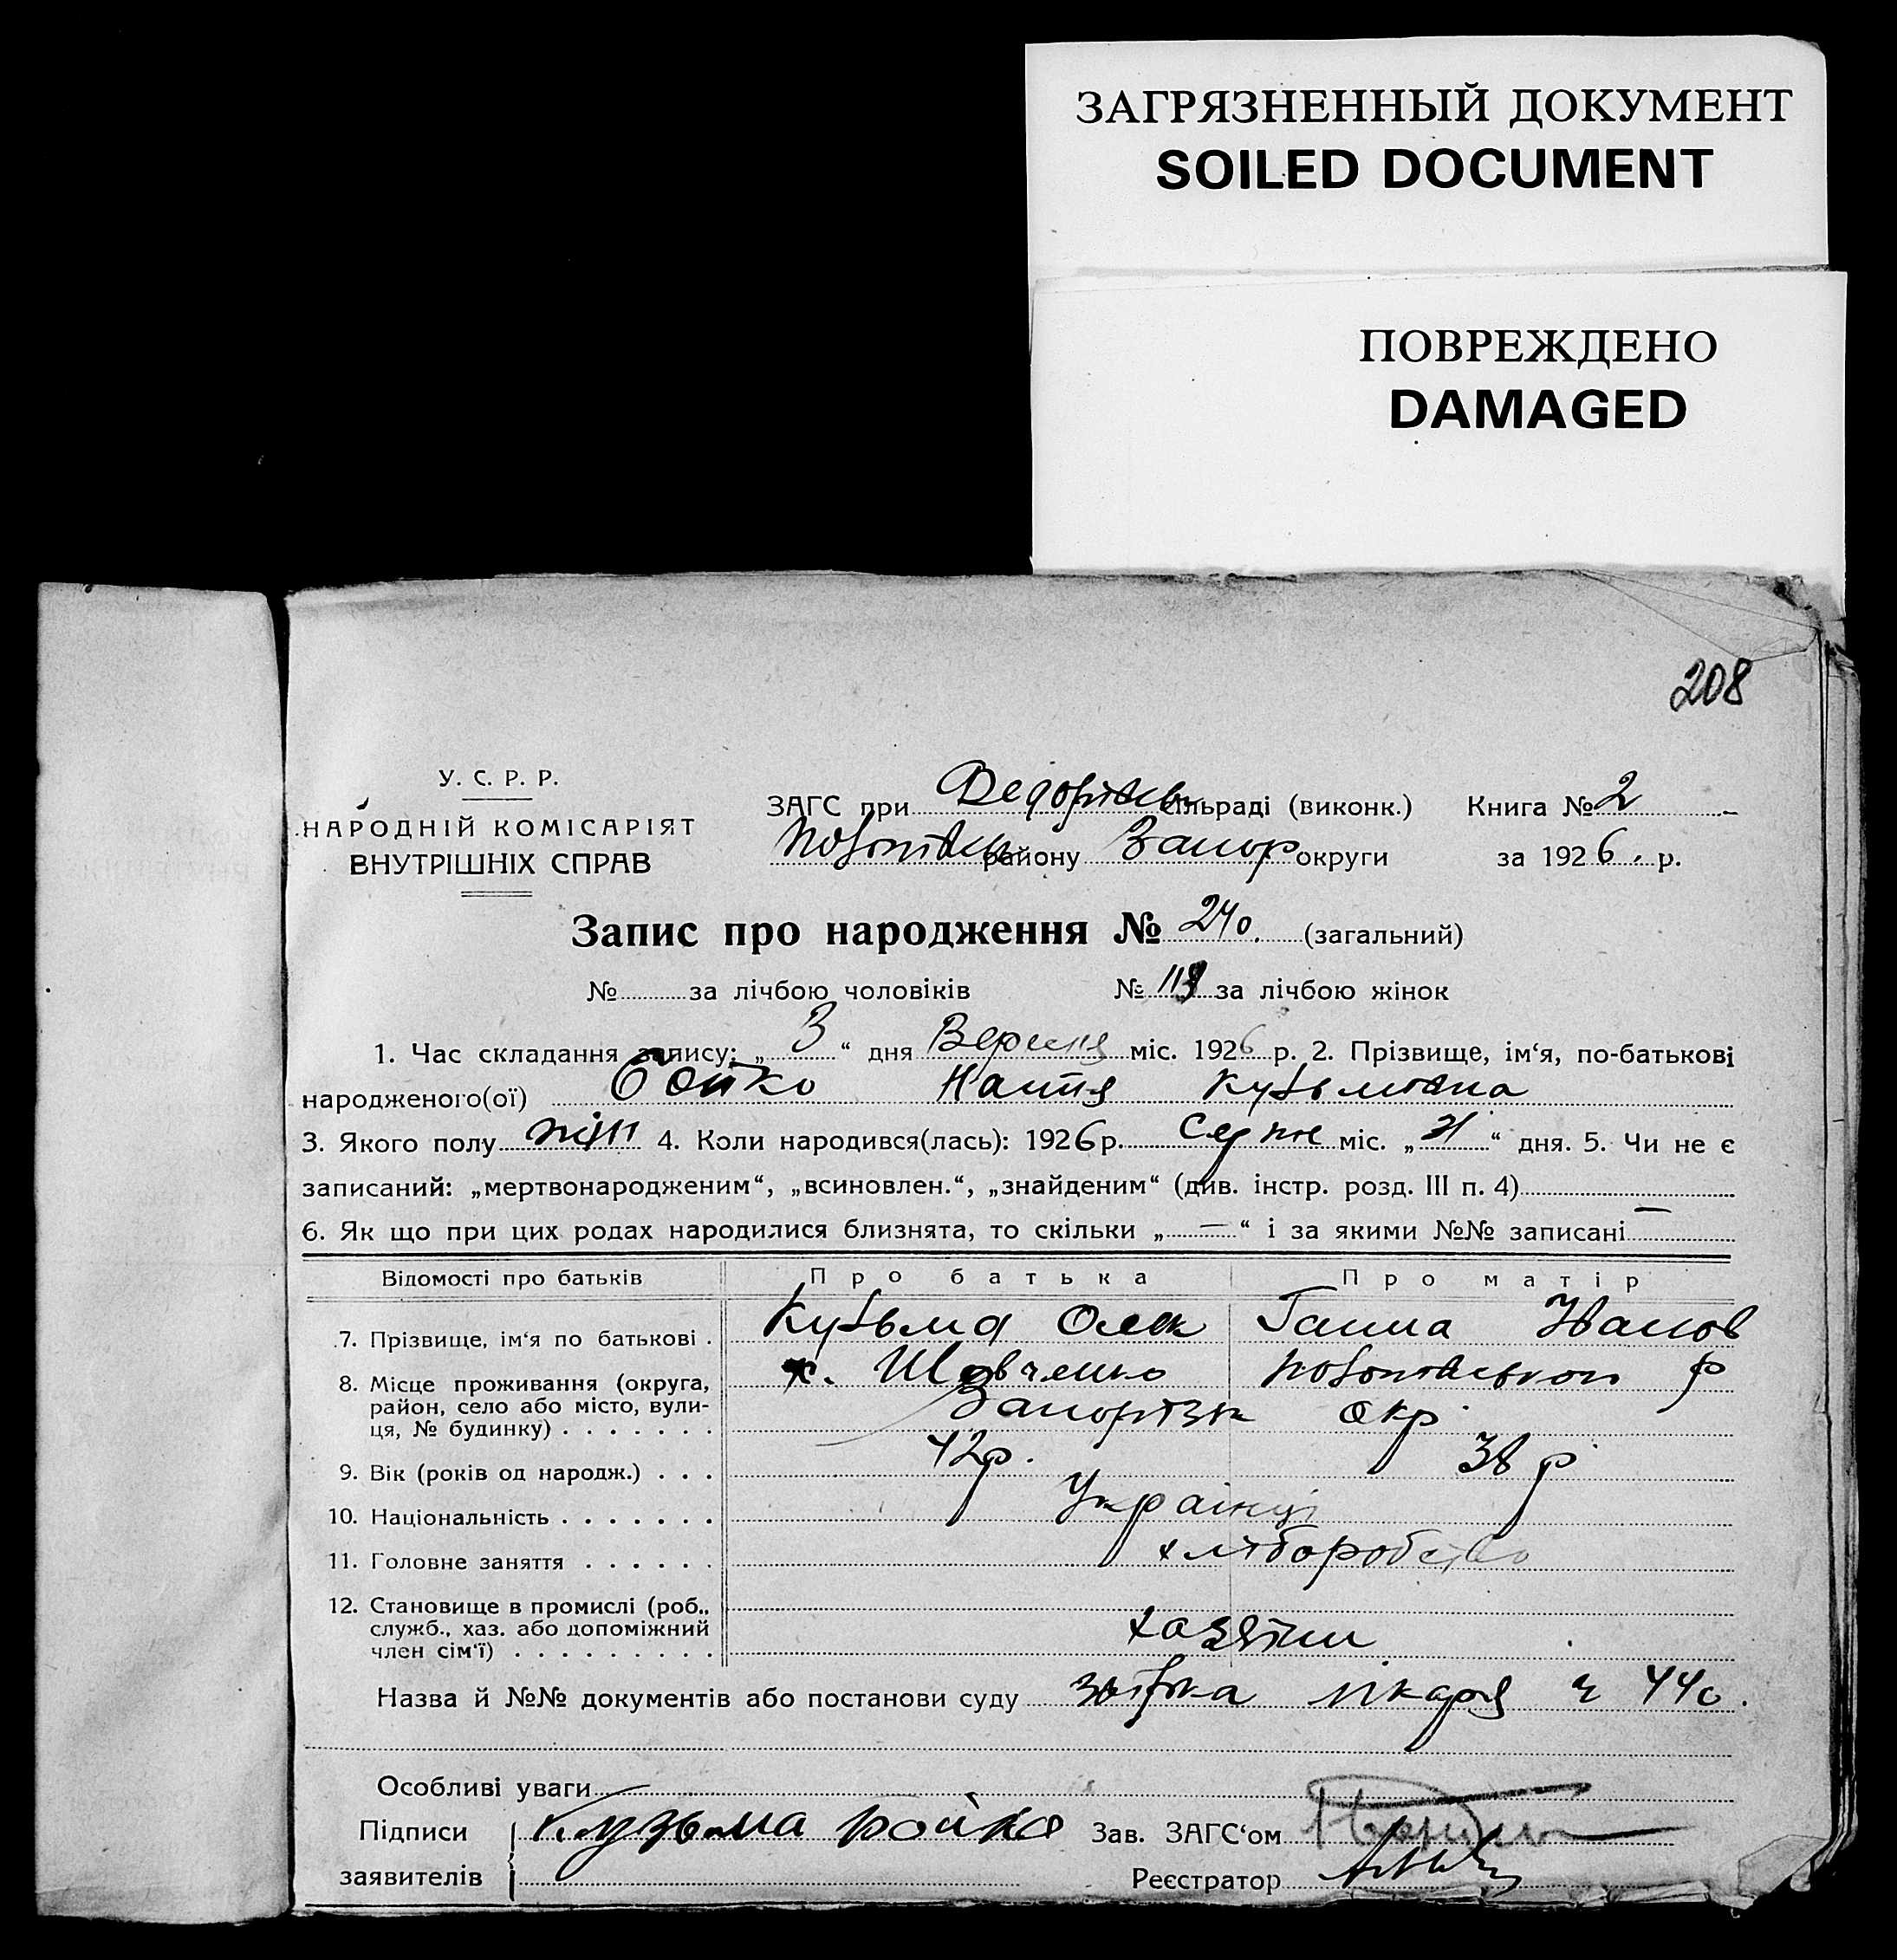 ЗАГРЯЗНЕННЫЙ ДОКУМЕНТ
SOILED DOCUMENT
ПОВРЕЖДЕНО
DAMAGED
208
У. С. Р. Р.
НАРОДНІЙ КОМІСАРІЯТ
ВНУТРІШНІХ СПРАВ
ЗАГС при Федорівсь сільраді (виконк.) Книга № 2
району Запор округи за 1926. р.
Запис про народження № 240. (загальний)
№ за лічбою чоловіків № за лічбою жінок
1. Час складання запису: „ 3 “ дня Вересня міс. 1926 р. 2. Прізвище, ім‘я, по-батькові
народженого(ої) Бойко Настя Кузьмівна
3. Якого полу жін 4. Коли народився(лась): 1926 р. Серпня міс. „ “ дня. 5. Чи не є
записаний: „мертвонародженим“, „всиновлен.“, „знайденим“ (див. інстр. розд. III п. 4)
6. Як що при цих родах народилися близнята, то скільки „ — “ і за якими №№ записані —
Відомості про батьків Про батька Про матір
7. Прізвище, ім‘я по батькові . Кузьма Олек Ганна Иванов
8. Місце проживання (округа, х. Шевченко р
район, село або місто, вули- Запорізк окр.
ця, № будинку) . . . . . . .
9. Вік (років од народж.) . . . 42р. 38 р
10. Національність . . . . . . . Українці
11. Головне заняття . . . . . . хліборобство
12. Становище в промислі (роб.,
служб., хаз. або допоміжний хазяїни
член сім‘ї) . . . . . . . . .
Назва й №№ документів або постанови суду лікаря ч 440.
Особливі уваги
Підписи Кузьма Бойко Зав. ЗАГС‘ом
заявителів Реєстратор